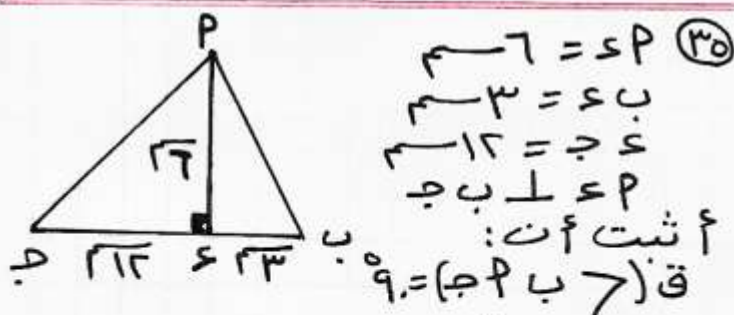 ٣٥ أ ء = ٦ سم
ب ء = ٣ سم
ء ج = ١٢ سم
أ ء ⊥ ب ج
أثبت أن:
ق(< ب أ ج) = ٩٠°
أ
٦سم
ج ١٢سم ء ٣سم ب